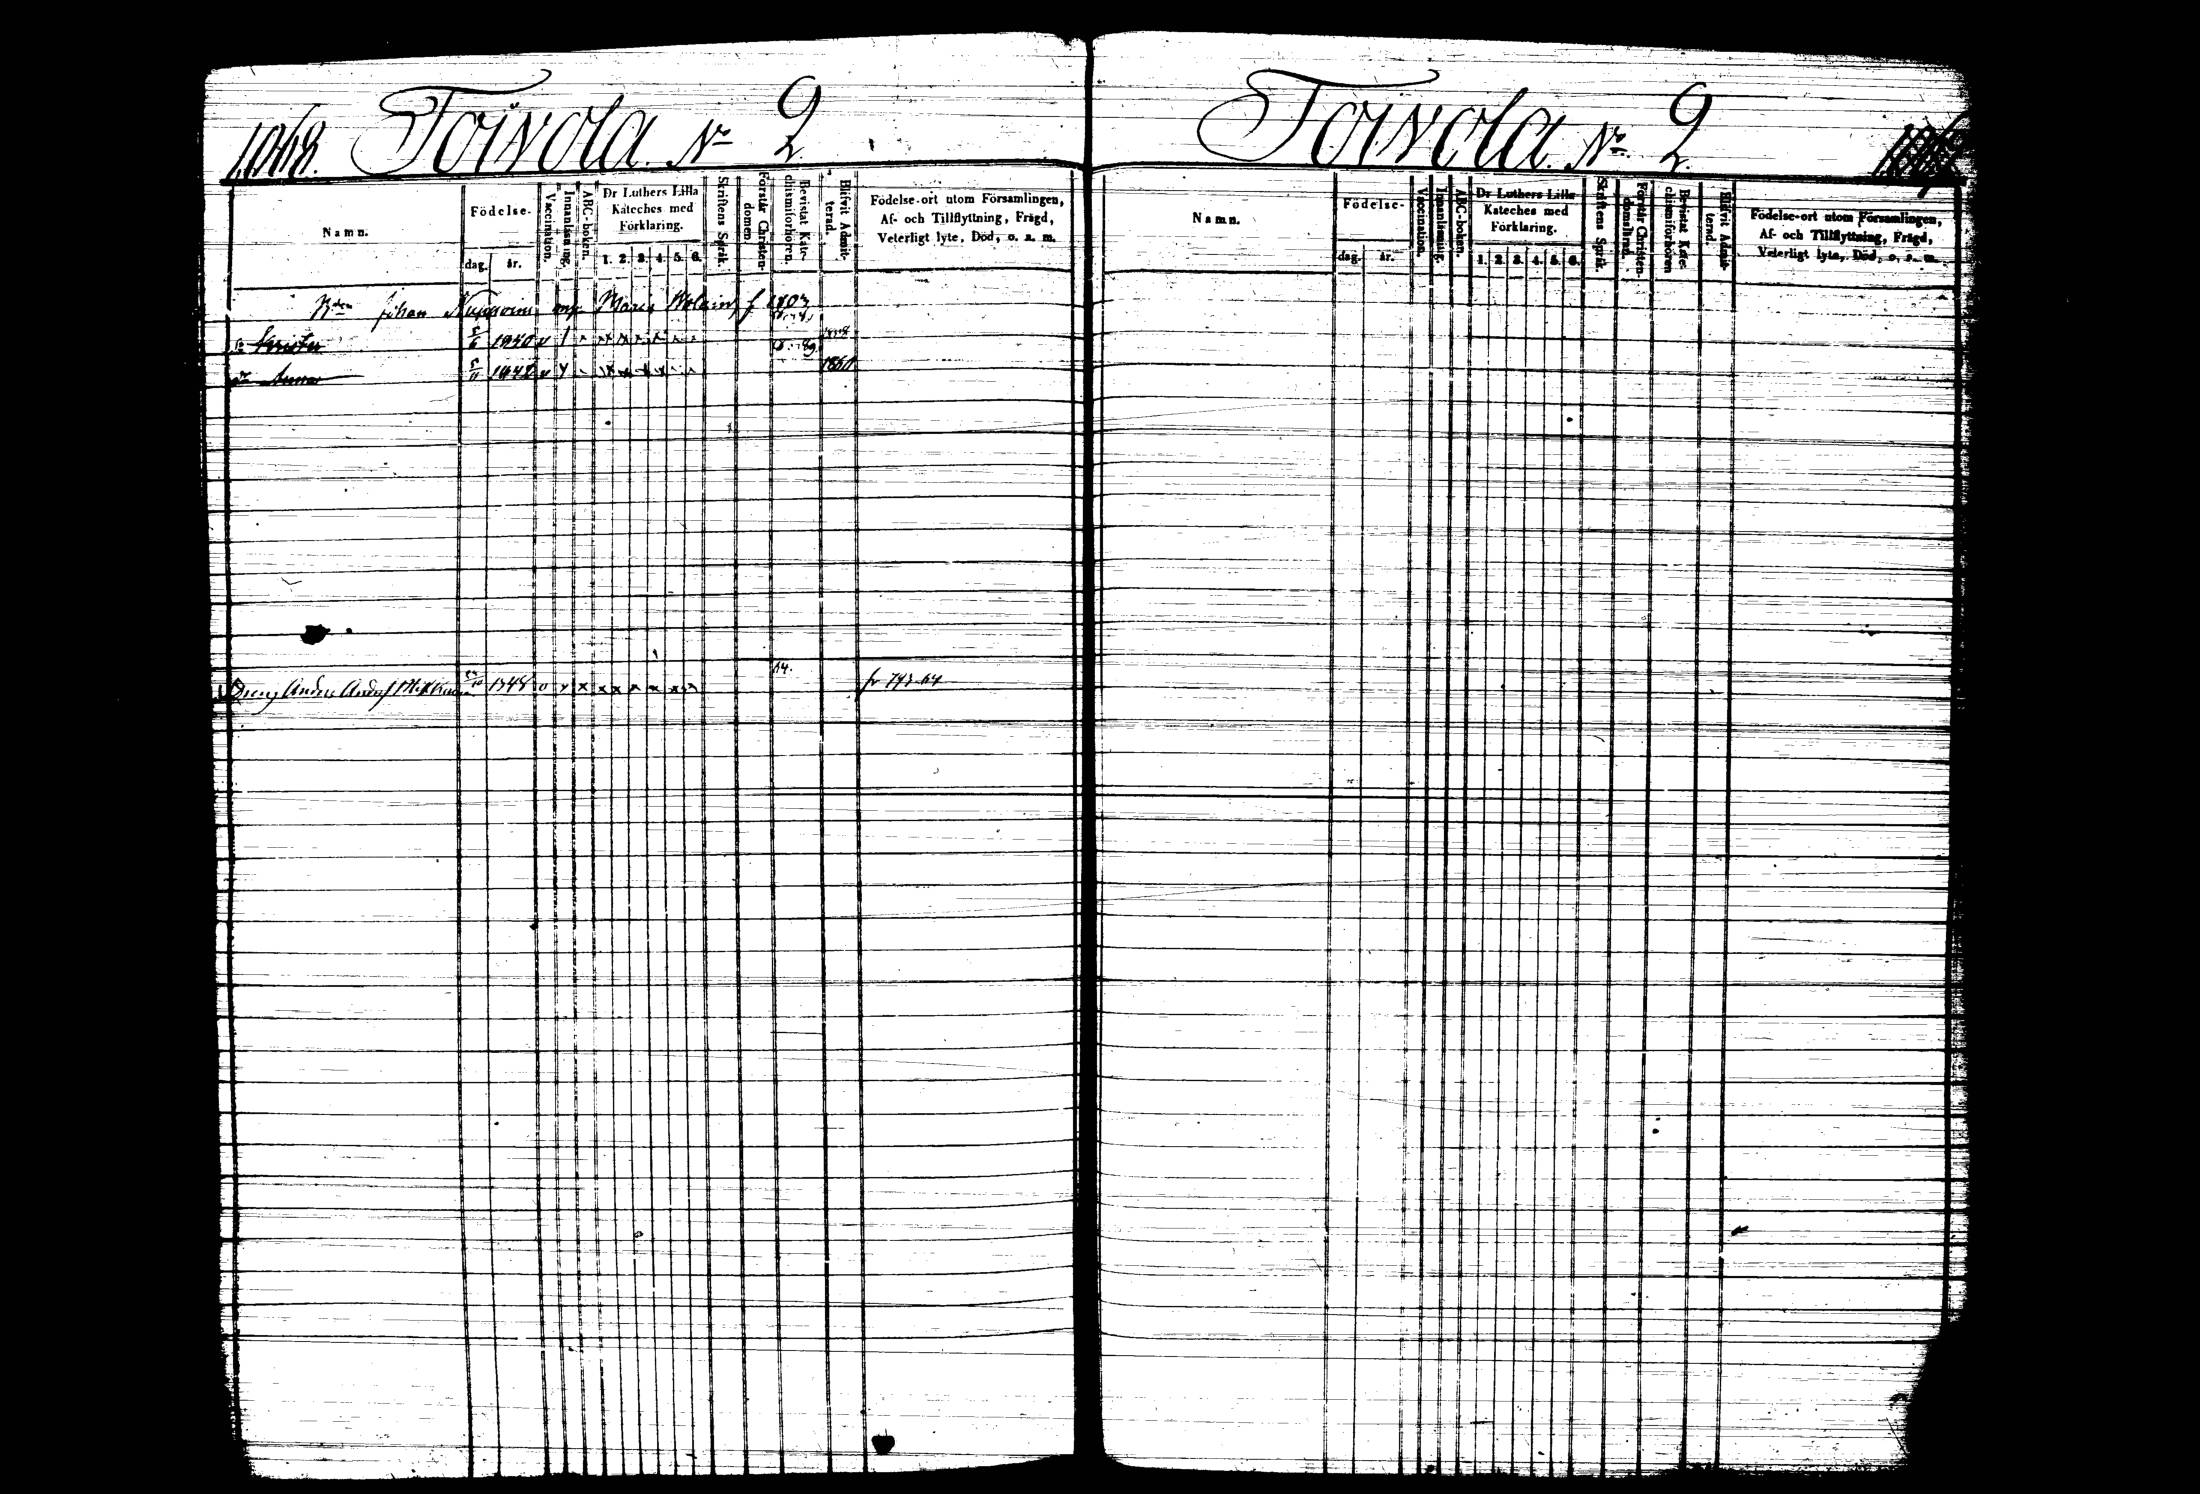 1068. Toivola. No 2.
Namn.
Födelse-
dag. år.
Vaccination.
Innanläsning.
ABC-boken.
Dr Luthers Lilla
Kateches med
Förklaring.
1. 2. 3. 4. 5. 6.
Skriftens Språk.
Förstår Christen-
domen.
Bevistat Kate-
chismiförhören.
Blifvit Admit-
terad.
Födelse-ort utom Församlingen,
Af- och Tillflyttning, Frägd,
Veterligt lyte, Död, o. s. m.
Johan Maria f 1803
5/6 1840
Anna 5/11 1842 1860
Dreng Anders 1848 64. fr 743-64
Toivola. No 2.
Namn.
Födelse-
dag. år.
Vaccination.
Innanläsning.
ABC-boken.
Dr Luthers Lilla
Kateches med
Förklaring.
1. 2. 3. 4. 5. 6.
Skriftens Språk.
Förstår Christen-
Bevistat Kate-
chismiförhören
Blifvit Admit-
terad.
Födelse-ort utom Församlingen,
Af- och Tillflyttning, Frägd,
Veterligt lyte, Död, o. s. m.